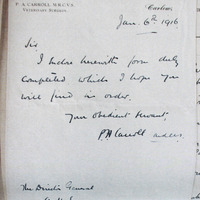 P. A. CARROLL, M.R.C.V.S.
VETERINARY SURGEON.
Carlow,
Jan. 6th 1916
Sir,
I enclose herewith form duly
completed which I hope you
will find in order.
Your obedient Servant,
P A Carroll
The Director General